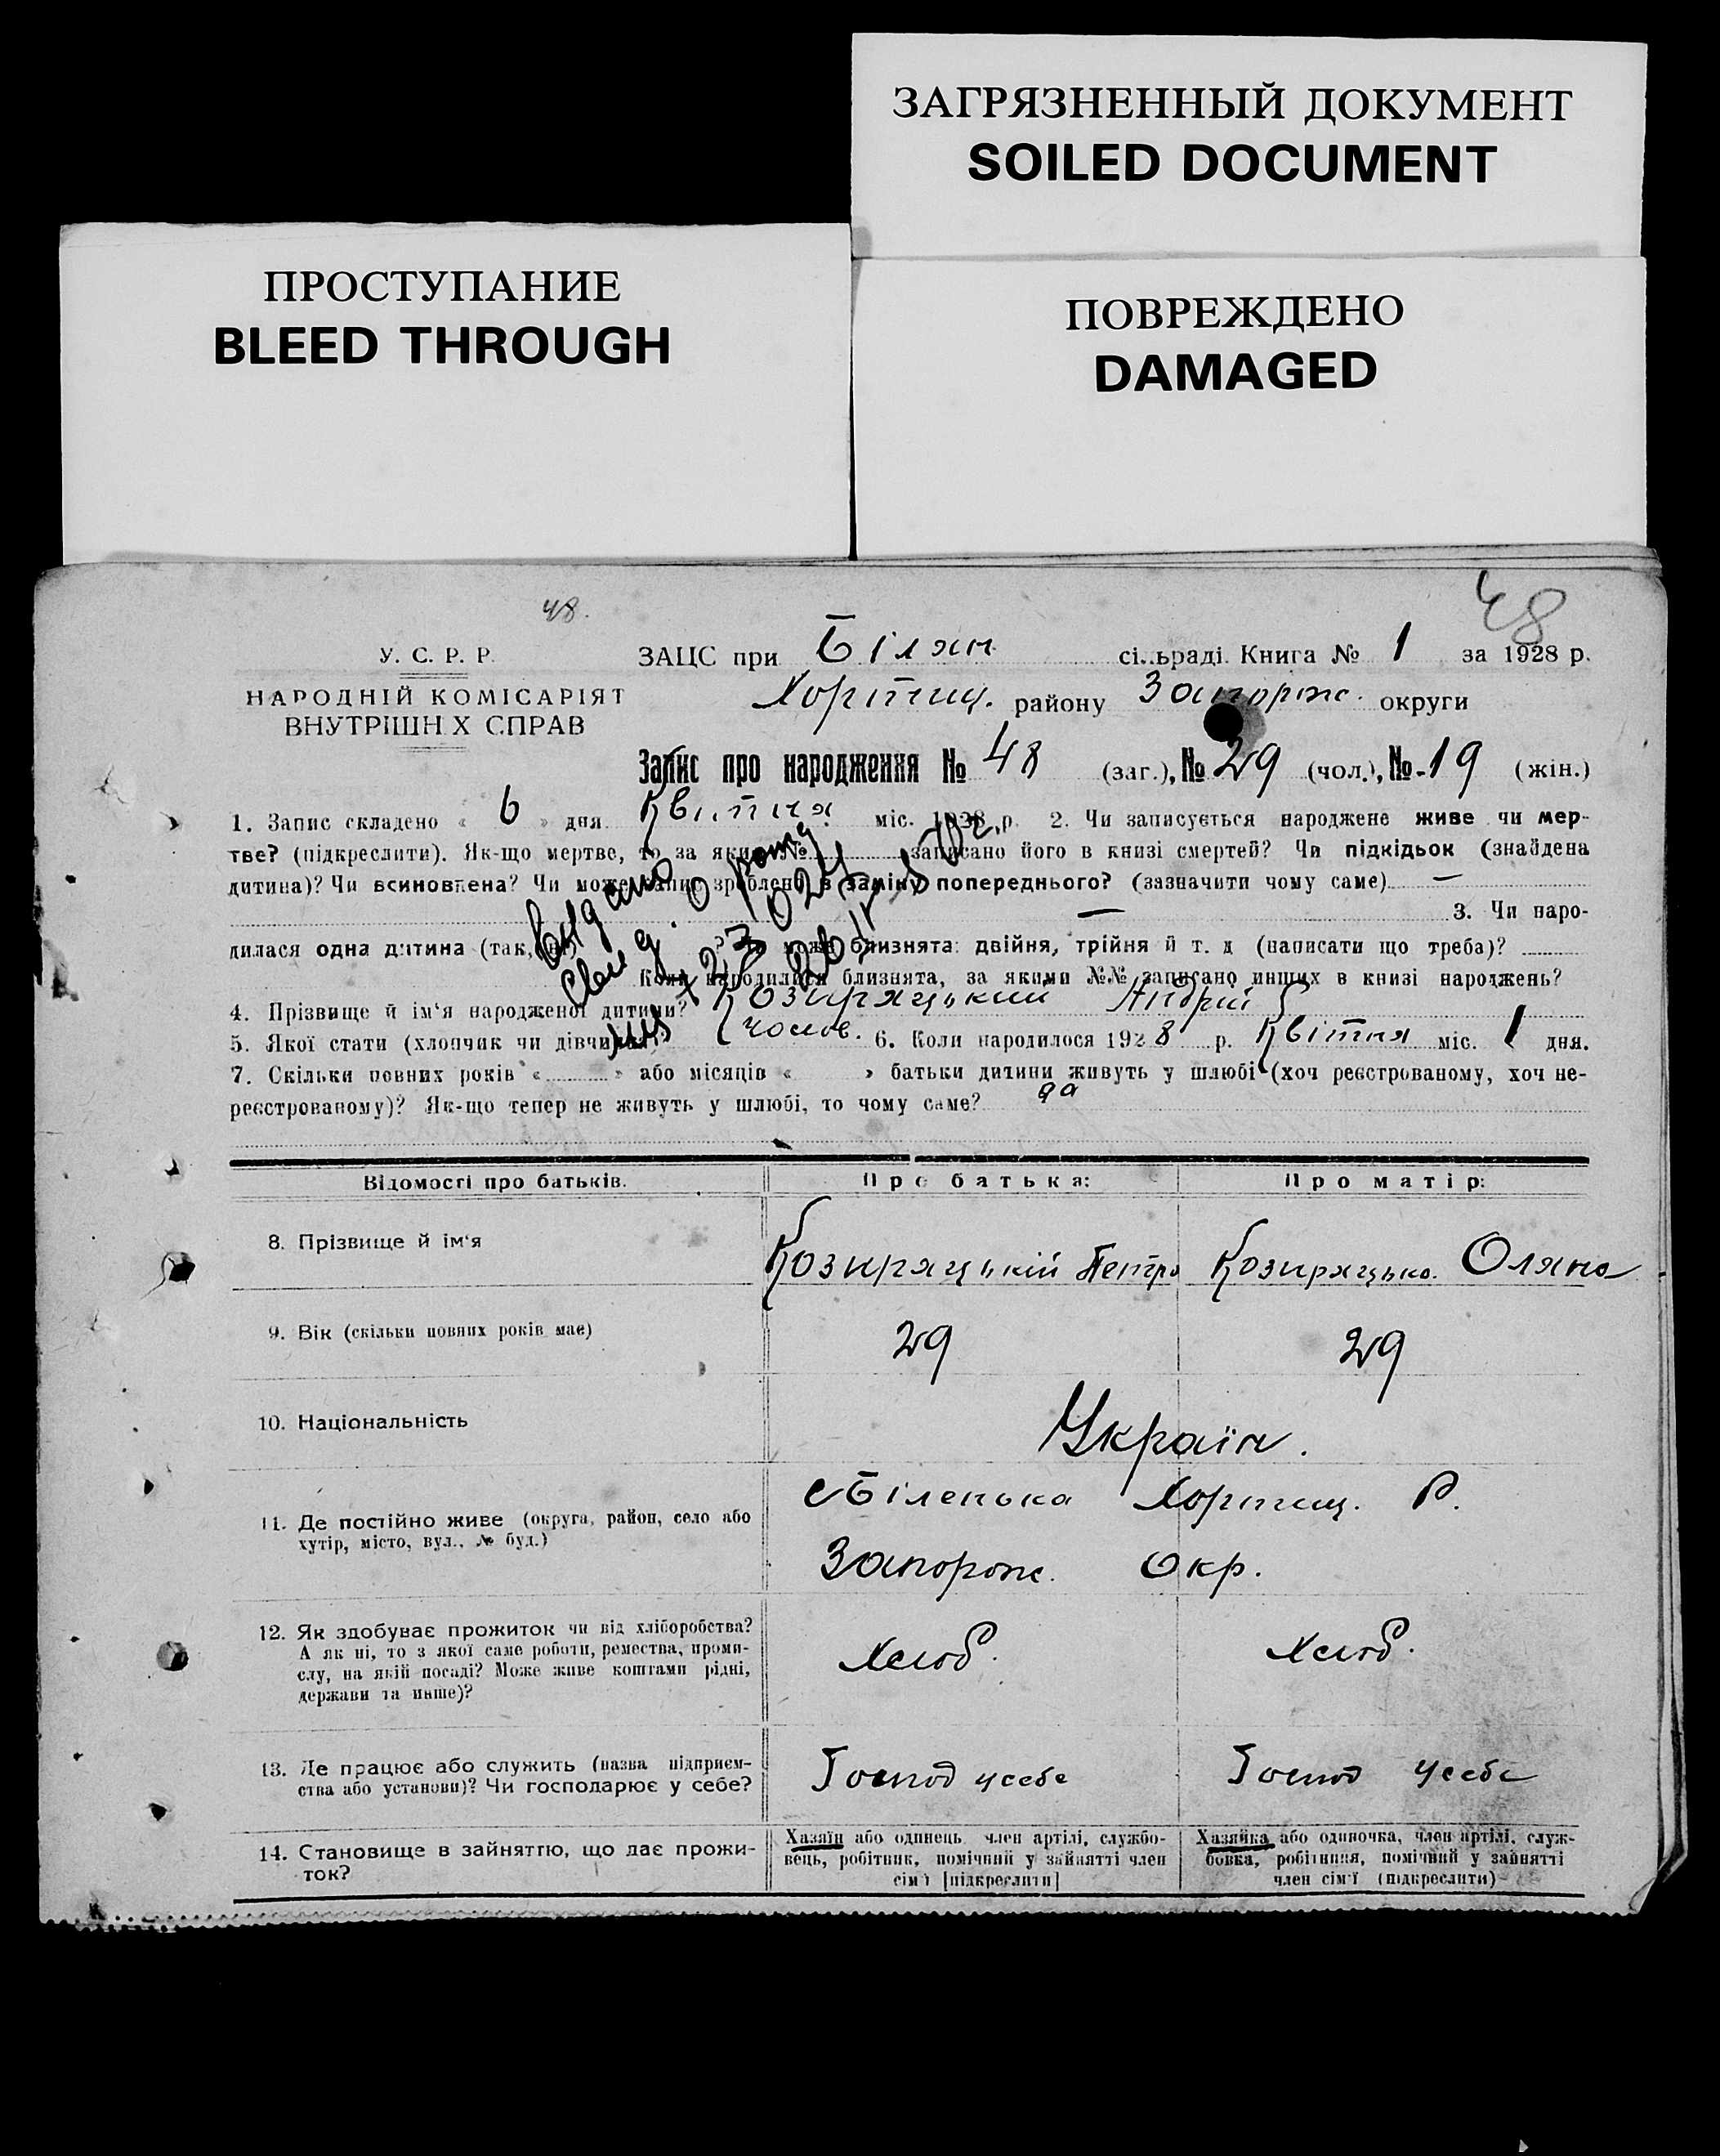 ЗАГРЯЗНЕННЫЙ ДОКУМЕНТ
SOILED DOCUMENT
ПРОСТУПАНИЕ
BLEED THROUGH
ПОВРЕЖДЕНО
DAMAGED
48.
48
У. С. Р. Р.
НАРОДНІЙ КОМІСАРІЯТ
ВНУТРІШН Х СПРАВ
ЗАЦС при Білян сі..ьраді. Книга № 1 за 1928 р.
Хортиц. району Запорож. округи
Запис про народження № 48 (заг.), № 29 (чол.), № 19 (жін.)
1. Запис складено « 6 » дня Квітня міс. 1928 р. 2. Чи записується народжене живе чи мер-
тве? (підкреслити). Як-що мертве, то за яким № записано його в книзі смертей? Чи підкідьок (знайдена
дитина)? Чи всиновлена? Чи може запис зроблено в заміну попереднього? (зазначити чому саме) —
— 3. Чи наро-
дилася одна дитина (так, ні) може близнята: двійня, трійня й т. д (написати що треба)?
Коли народилися близнята, за якими №№ записано инших в книзі народжень?
Видано
свид. о рожд
4. Прізвище й ім'я народженої дитини? Козиряцький Андрій
5. Якої стати (хлопчик чи дівчинка)? чолов. 6. Коли народилося 1928 р. Квітня міс. 1 дня.
7. Скільки повних років « » або місяців « » батьки дитини живуть у шлюбі (хоч реєстрованому, хоч не-
реєстрованому)? Як-що тепер не живуть у шлюбі, то чому саме? да
Відомості про батьків.
Про батька:
Про матір:
8. Прізвище й ім'я
Козиряцькій Петро
Козиряцька. Оляна
9. Вік (скільки повних років має)
29
29
10. Національність
Україн.
11. Де постійно живе (округа, район, село або
хутір, місто, вул., № буд.)
с Біленька Хортиц. Р.
Запорож. Окр.
12. Як здобуває прожиток чи від хліборобства?
А як ні, то з якої саме роботи, ремества, проми-
слу, на якій посаді? Може живе коштами рідні,
держави та инше)?
Хліб.
Хліб.
13. Де працює або служить (назва підприєм-
ства або установи)? Чи господарює у себе?
Господ усебе
Господ усебе
14. Становище в зайняттю, що дає прожи-
ток?
Хазяїн або одинець член артілі, службо-
вець, робітник, помічний у зайнятті член
сім'ї [підкреслити]
Хазяйка або одиночка, член артілі, служ-
бовка, робітниця, помічний у зайнятті
член сім'ї (підкреслити)